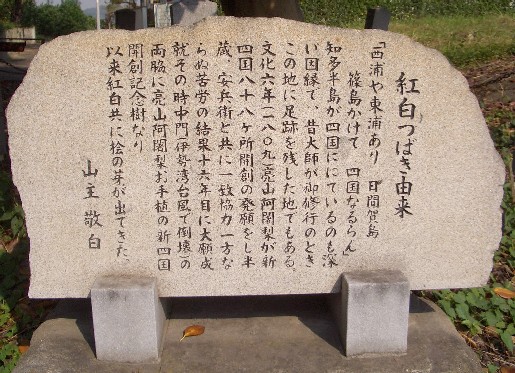 紅白つばき由来
「西浦や東浦あり 日間賀島
篠島かけて 四国なるらん」
知多半島が四国ににているのも深
い因縁で、昔大師が御修行のとき
この地に足跡を残した地でもある。
文化六年(一八〇九)亮山阿闍梨が新
四国八十八ヶ所開創の発願をし半
蔵、安兵衛と共に一致協力一方な
らぬ苦労の結果十六年目に大願成
就その時中門(伊勢湾台風で倒壊)の
両脇に亮山阿闍梨お手植の新四国
開創記念樹なり
以来紅白共に桧の芽が出てきた。
山主 敬白